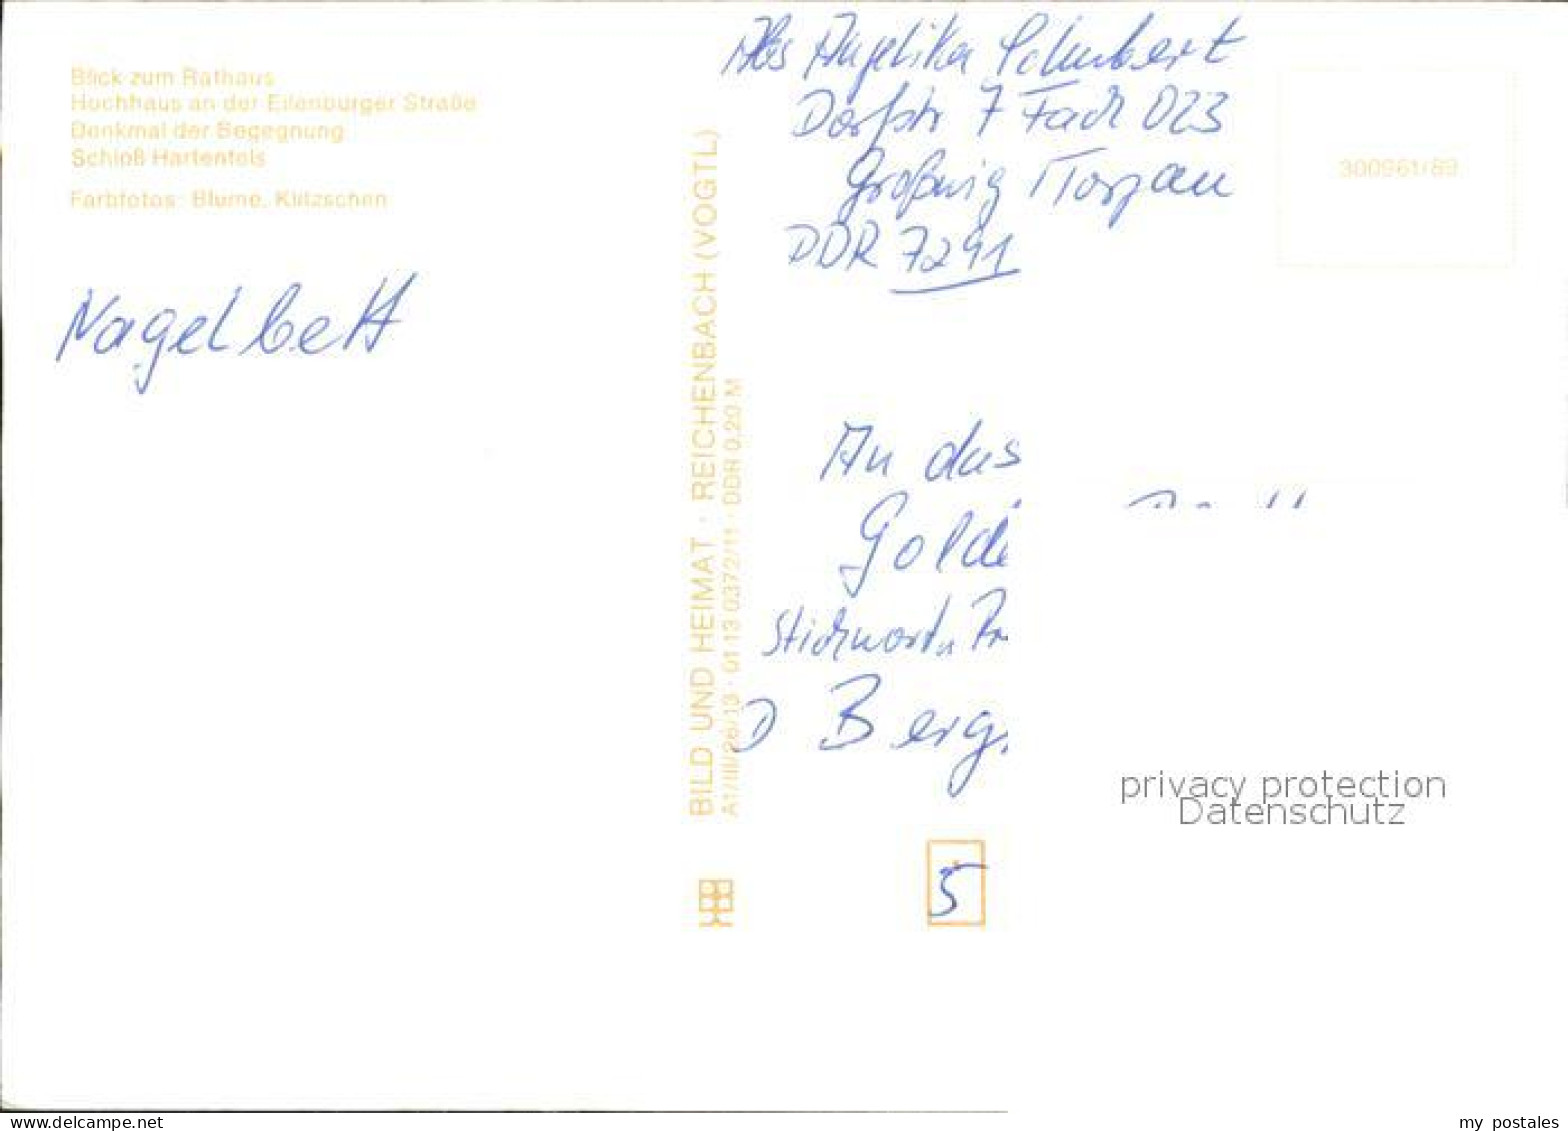 Blick zum Rathaus
Hochhaus an der Eilenburger Straße
Denkmal der Begegnung
Schloß Hartenfels
Farbfotos: Blume, Klitzschen
Nagelbett
BILD UND HEIMAT · REICHENBACH (VOGTL)
A1/III/26/13 · 01 13 0372/11 · DDR 0,20 M
Abs Angelika Schubert
Dorfstr 7 Fach 023
Großwig / Torgau
DDR 7291
300961/89
An das
Gold
Stichwort
D Berg
5
privacy protection
Datenschutz
www.delcampe.net
my_postales